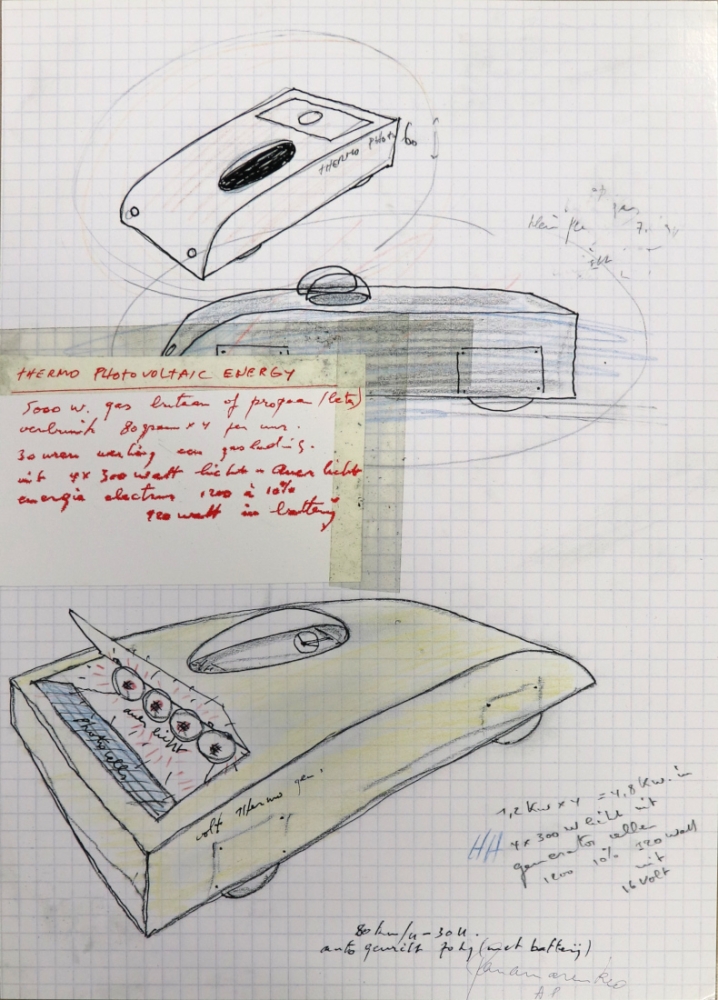 THERMO PHOTO
60
THERMO PHOTOVOLTAIC ENERGY
5000 w. gas butaan of propaan
verbruik 80 gram x 4 per uur.
30 uren werking een gaslading.
uit 4x 300 watt licht = auer licht
energie electrum 1200 à 10%
120 watt in battery
auer licht
Photocellen
volt thermo gen.
1,2 Kw x 4 = 4,8 Kw. in
4x300 w licht uit
generator cellen
1200 10% 320 watt
uit
16 volt
80 km/u - 30 u.
auto gewicht 70 kg (met batterij)
Panamarenko